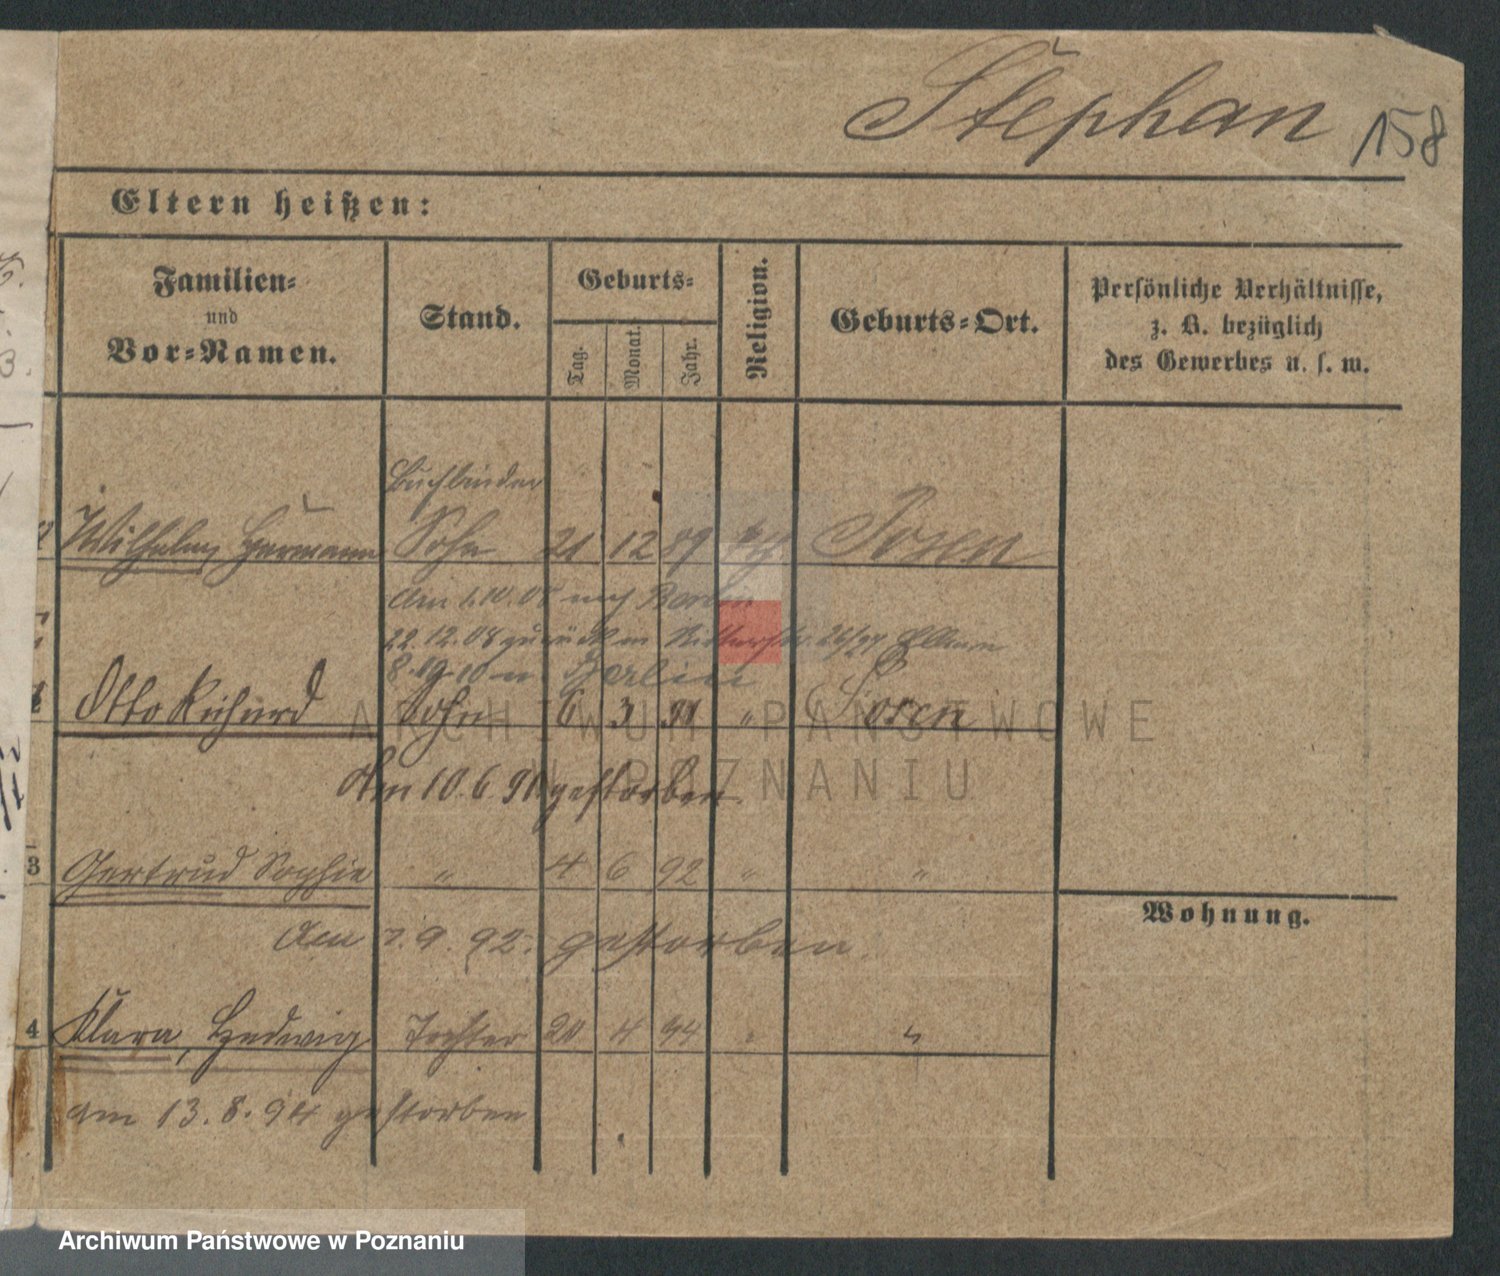 Stephan 158
Eltern heißen:
Familien-
und
Vor-Namen.
Stand.
Geburts-
Tag.
Monat.
Jahr.
Religion.
Geburts-Ort.
Persönliche Verhältnisse,
z. B. bezüglich
des Gewerbes u. s. w.
Buchbinder
Wilhelm Hermann Sohn 21 12 89 Posen
Am 1.10.08 nach Berlin
22.12.08 zurück 26/27 Eltern
8.10.10 n. Berlin
Otto Richard Sohn 6 3 91 " Posen
Am 10.6.91 gestorben
3 Gertrud Sophie " 4 6 92 " "
Am 7.9.92. gestorben.
Wohnung.
4 Klara, Hedwig Tochter 20 4 94 " "
am 13.8.94 gestorben
ARCHIWUM PAŃSTWOWE
W POZNANIU
Archiwum Państwowe w Poznaniu